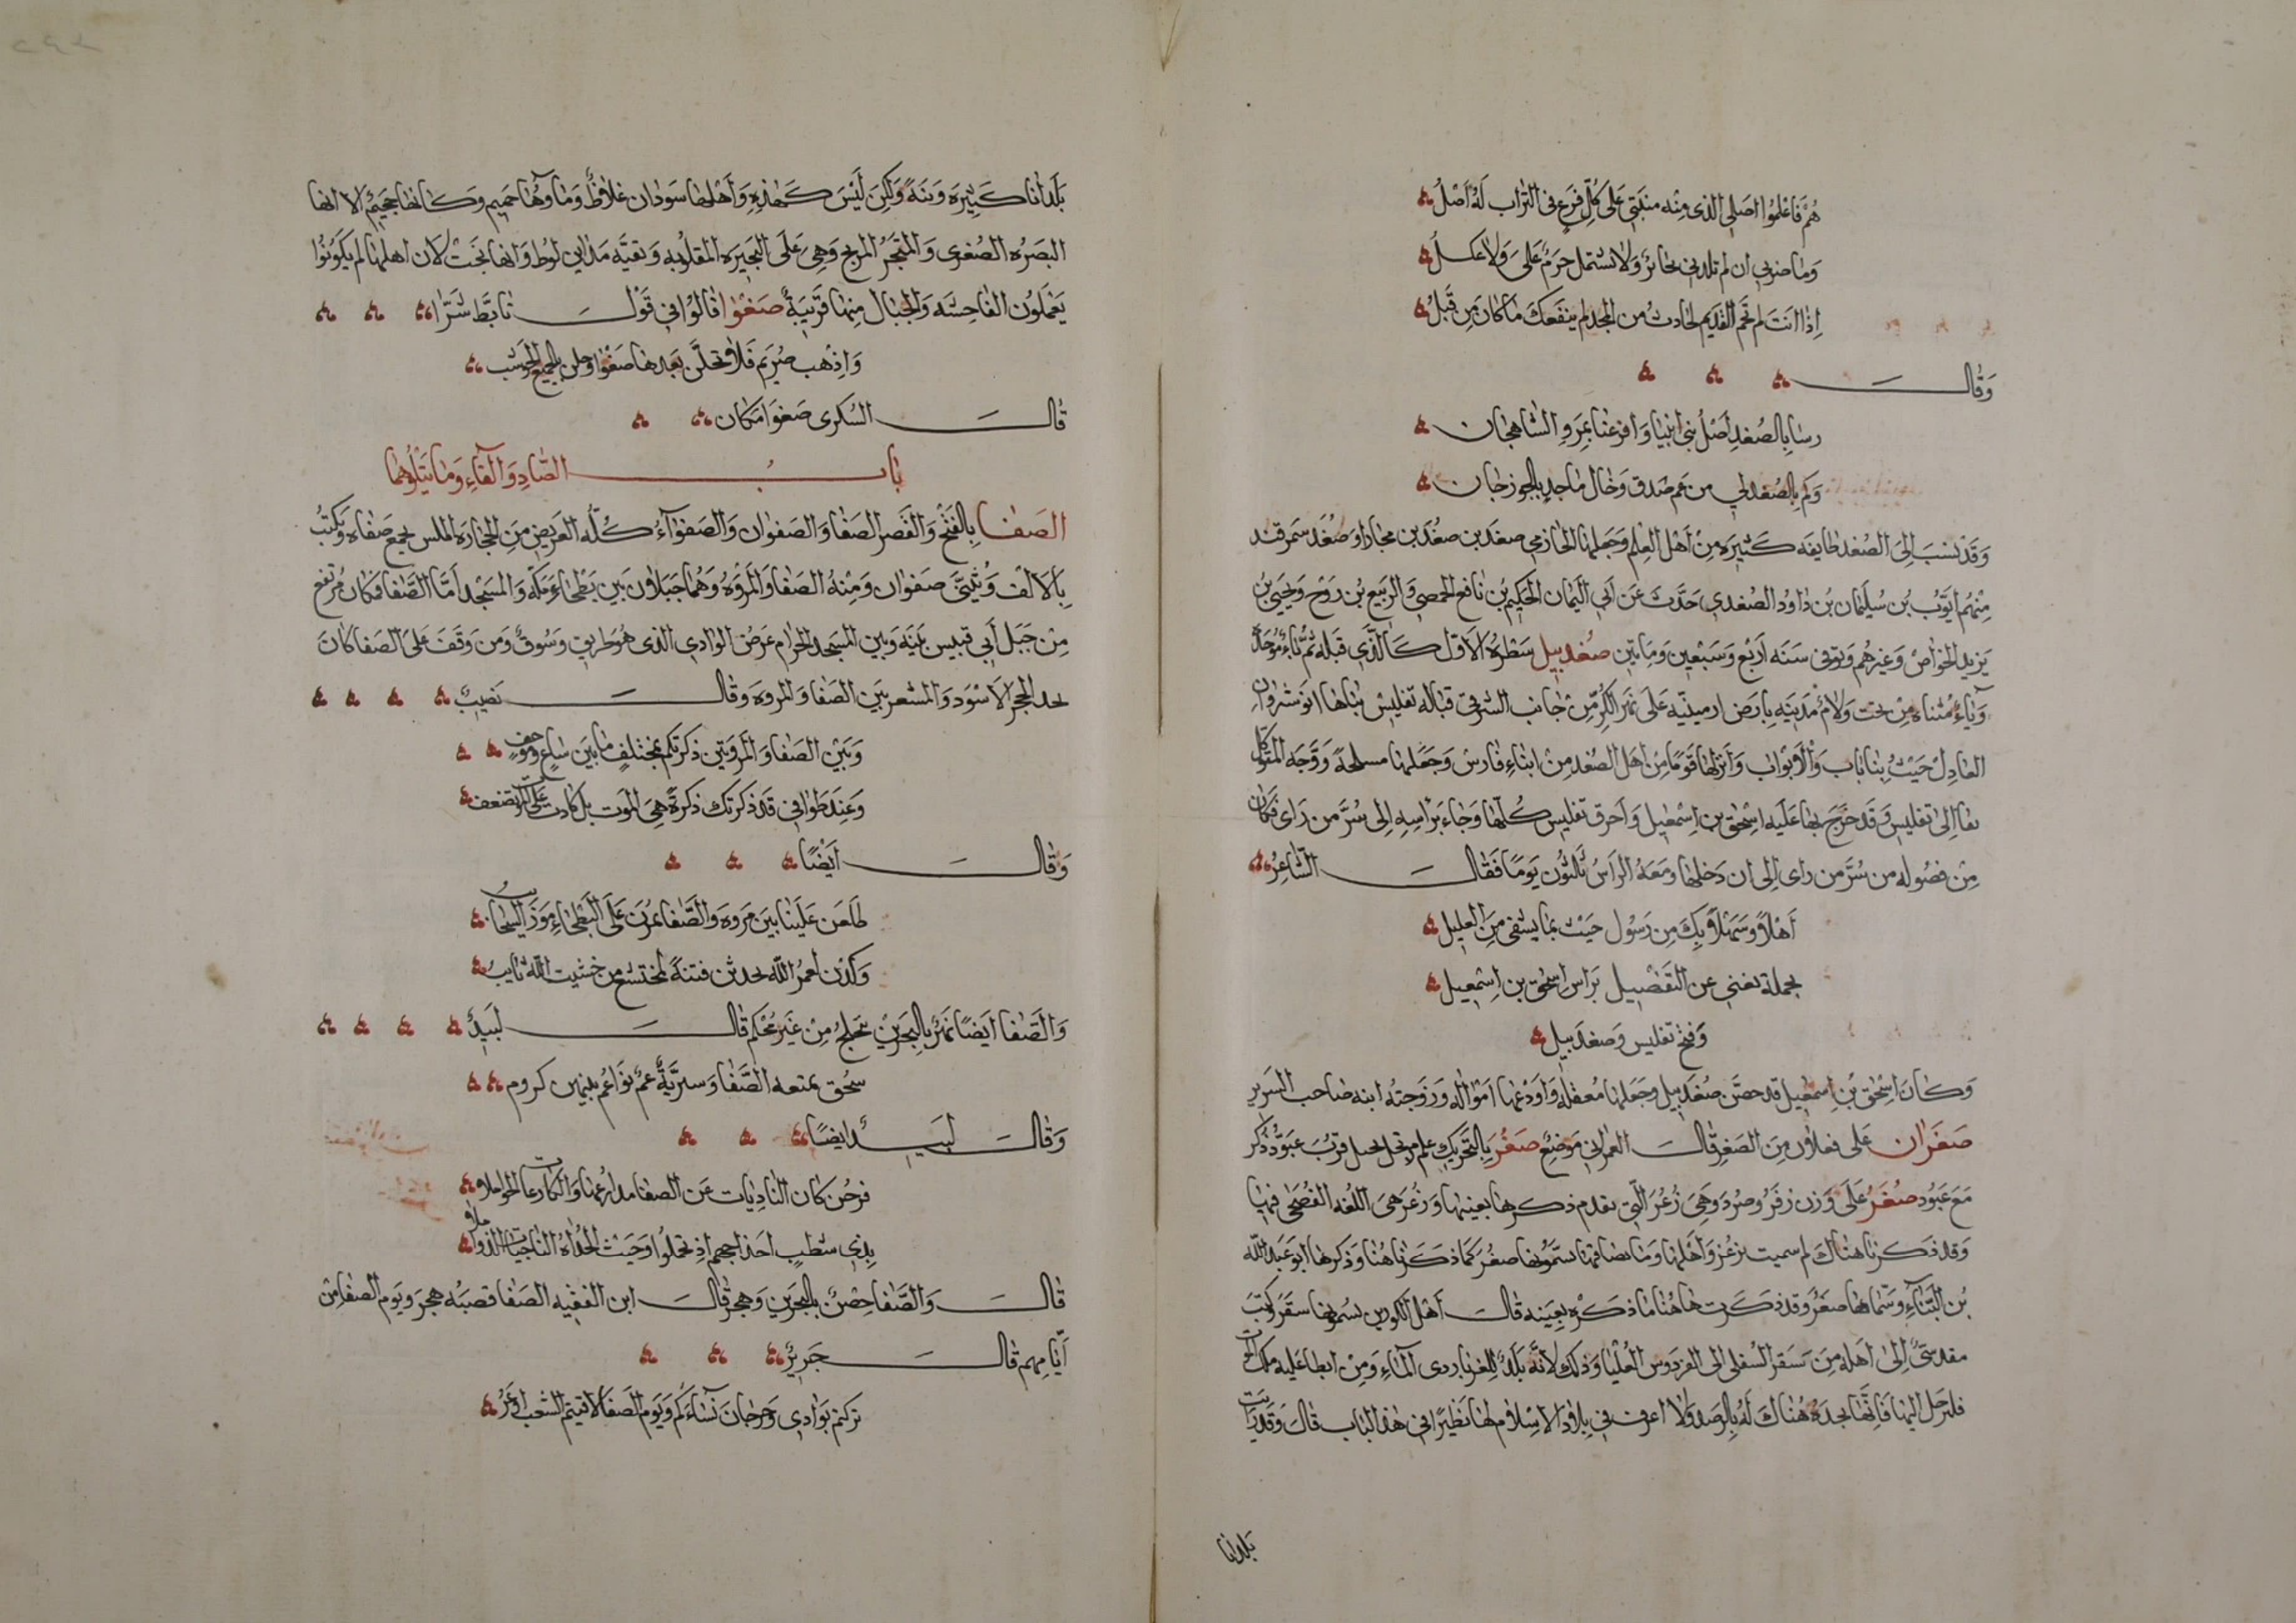 هم فاعلموا اصلى الذى منه منبتى على كل فرع فى التراب له أصل
وما ضرنى ان لم تلدنى يحابر ولا تشتمل جرم على ولا عكل
اذا انت لم تحم القديم لحادث من المجد لم ينفعك ما كان من قبل
وقال
رسا بالصغد أصل بنى ابينا وافرعنا بمرو الشاهجان
وكم بالصغد لى من عم صدق وخال ماجد بالجوزجان
وقد نسب الى الصغد طايفه كثيره من أهل العلم وجعلها الحازمى صغدين صغد بن مجارا وصغد سمرقند
منهم ايوب بن سليمان بن داود الصغدى حدث عن أبى اليمان الحكيم بن نافع الحمصى والربيع بن روح ويحيى بن
يزيد الخواص وغيرهم وتوفى سنه اربع وسبعين ومايتين صغدبيل شطره الاول كالذى قبله ثم باء موحدة
وياء مثناه من تحت ولام مدينه بارض ارمينيه على نهر الكر من جانب الشرقى قباله تفليس بناها انوشروان
العادل حيث بنا باب والأبواب وانزلها قوما من اهل الصغد من ابناء فارس وجعلها مسلحة ووجه المتوكل
بغا الى تفليس وقد خرج بها عليه اسحق بن اسمعيل وأحرق تفليس كلها وجاء براسه الى سر من راى فكان
من فصوله من سر من راى الى ان دخلها ومعه الراس ثلثون يوما فقال الشاعر
أهلا وسهلا بك من رسول جيت بما يشفى من الغليل
بجملة تغنى عن التفصيل براس اسحق بن اسمعيل
وفتح تفليس وصغدبيل
وكان اسحق بن اسمعيل قد حصن صغدبيل وجعلها معقله واودعها امواله وزوجته ابنه صاحب السرير
صغران على فعلان من الصغر قال العمرانى موضع صغر بالتحريك علم مرتجل لجبل قرب عبود ذكر
مع عبود صغر على وزن زفر وصرد وهى زغر التى تقدم ذكرها بعينها وزغر هى اللغه الفصحى فيها
وقد ذكرنا هناك لم سميت بزغر وأهلها وما يصاقبها يسمونها صغر كما ذكرنا هنا وذكرها ابو عبد الله
بن البناء وسماها صغر وقد ذكرت هاهنا ما ذكره بعينه قال أهل الكورين يسمونها سقر وكتب
مقدسى الى اهله من سقر السفلى الى الفردوس العليا وذلك لانه بلد للغربا ردى الماء ومن ابطا عليه ملك الموت
فليرحل اليها فانها تجده هناك له بالرصد ولا اعرف فى بلاد الاسلام لها نظيرا فى هذا الباب قال وقد رايت
بلدانا
بلدانا كثيره وبئة ولكن ليس كهذه وأهلها سودان غلاظ وماؤها حميم وكانها جحيم الا انها
البصره الصغرى والمتجر المربح وهى على البحيره المقلوبه وبقيه مداين لوط وانها نجت لان اهلها لم يكونوا
يعملون الفاحشه والجبال منها قريبة صغوا قالوا فى قول تابط شرا
واذهب صريم فلا تحلن بعدها صغوا وحلن بالجميع الحوشب
قال السكرى صغوا مكان
باب الصاد والفاء وما يتلوهما
الصفا بالفتح والقصر الصفا والصفوان والصفواء كله العريض من الحجاره الملس جمع صفاه ويكتب
بالالف ويثنى صفوان ومنه الصفا والمروه وهما جبلان بين بطحاء مكه والمسجد أما الصفا فكان مرتفع
من جبل أبى قبيس بينه وبين المسجد الحرام عرض الوادى الذى هو طريق وسوق ومن وقف على الصفا كان
بحد الحجر الأسود والمشعر بين الصفا والمروه وقال نصيب
وبين الصفا والمروتين ذكرتكم بمختلف ما بين ساع وموجف
وعند طوافى قد ذكرتك ذكرة هى الموت بل كادت على الموت تضعف
وقال أيضا
طلعن علينا بين مروه والصفا يمرن على البطحاء مور السحائب
وكدن لعمر الله يحدثن فتنة لمختشع من خشيت الله تايب
والصفا ايضا نهر بالبحرين يتخلج من غير محكم قال لبيد
سحق بمنعه الصفا وسرية عم نواعم بينهن كروم
وقال لبيد ايضا
فرحن كان الناديات عن الصفا مدارعها والكارعات الحواملا
بذى شطب احداجهم اذ تحملوا وحيث الحداه الناجيات الذواملا
قال والصفا حصن بالبحرين وهجر قال ابن الفقيه الصفا قصبه هجر ويوم الصفا من
أيامهم قال جرير
تركتم بوادى رحرحان نساءكم ويوم الصفا لاقيتم الشعب اوعر